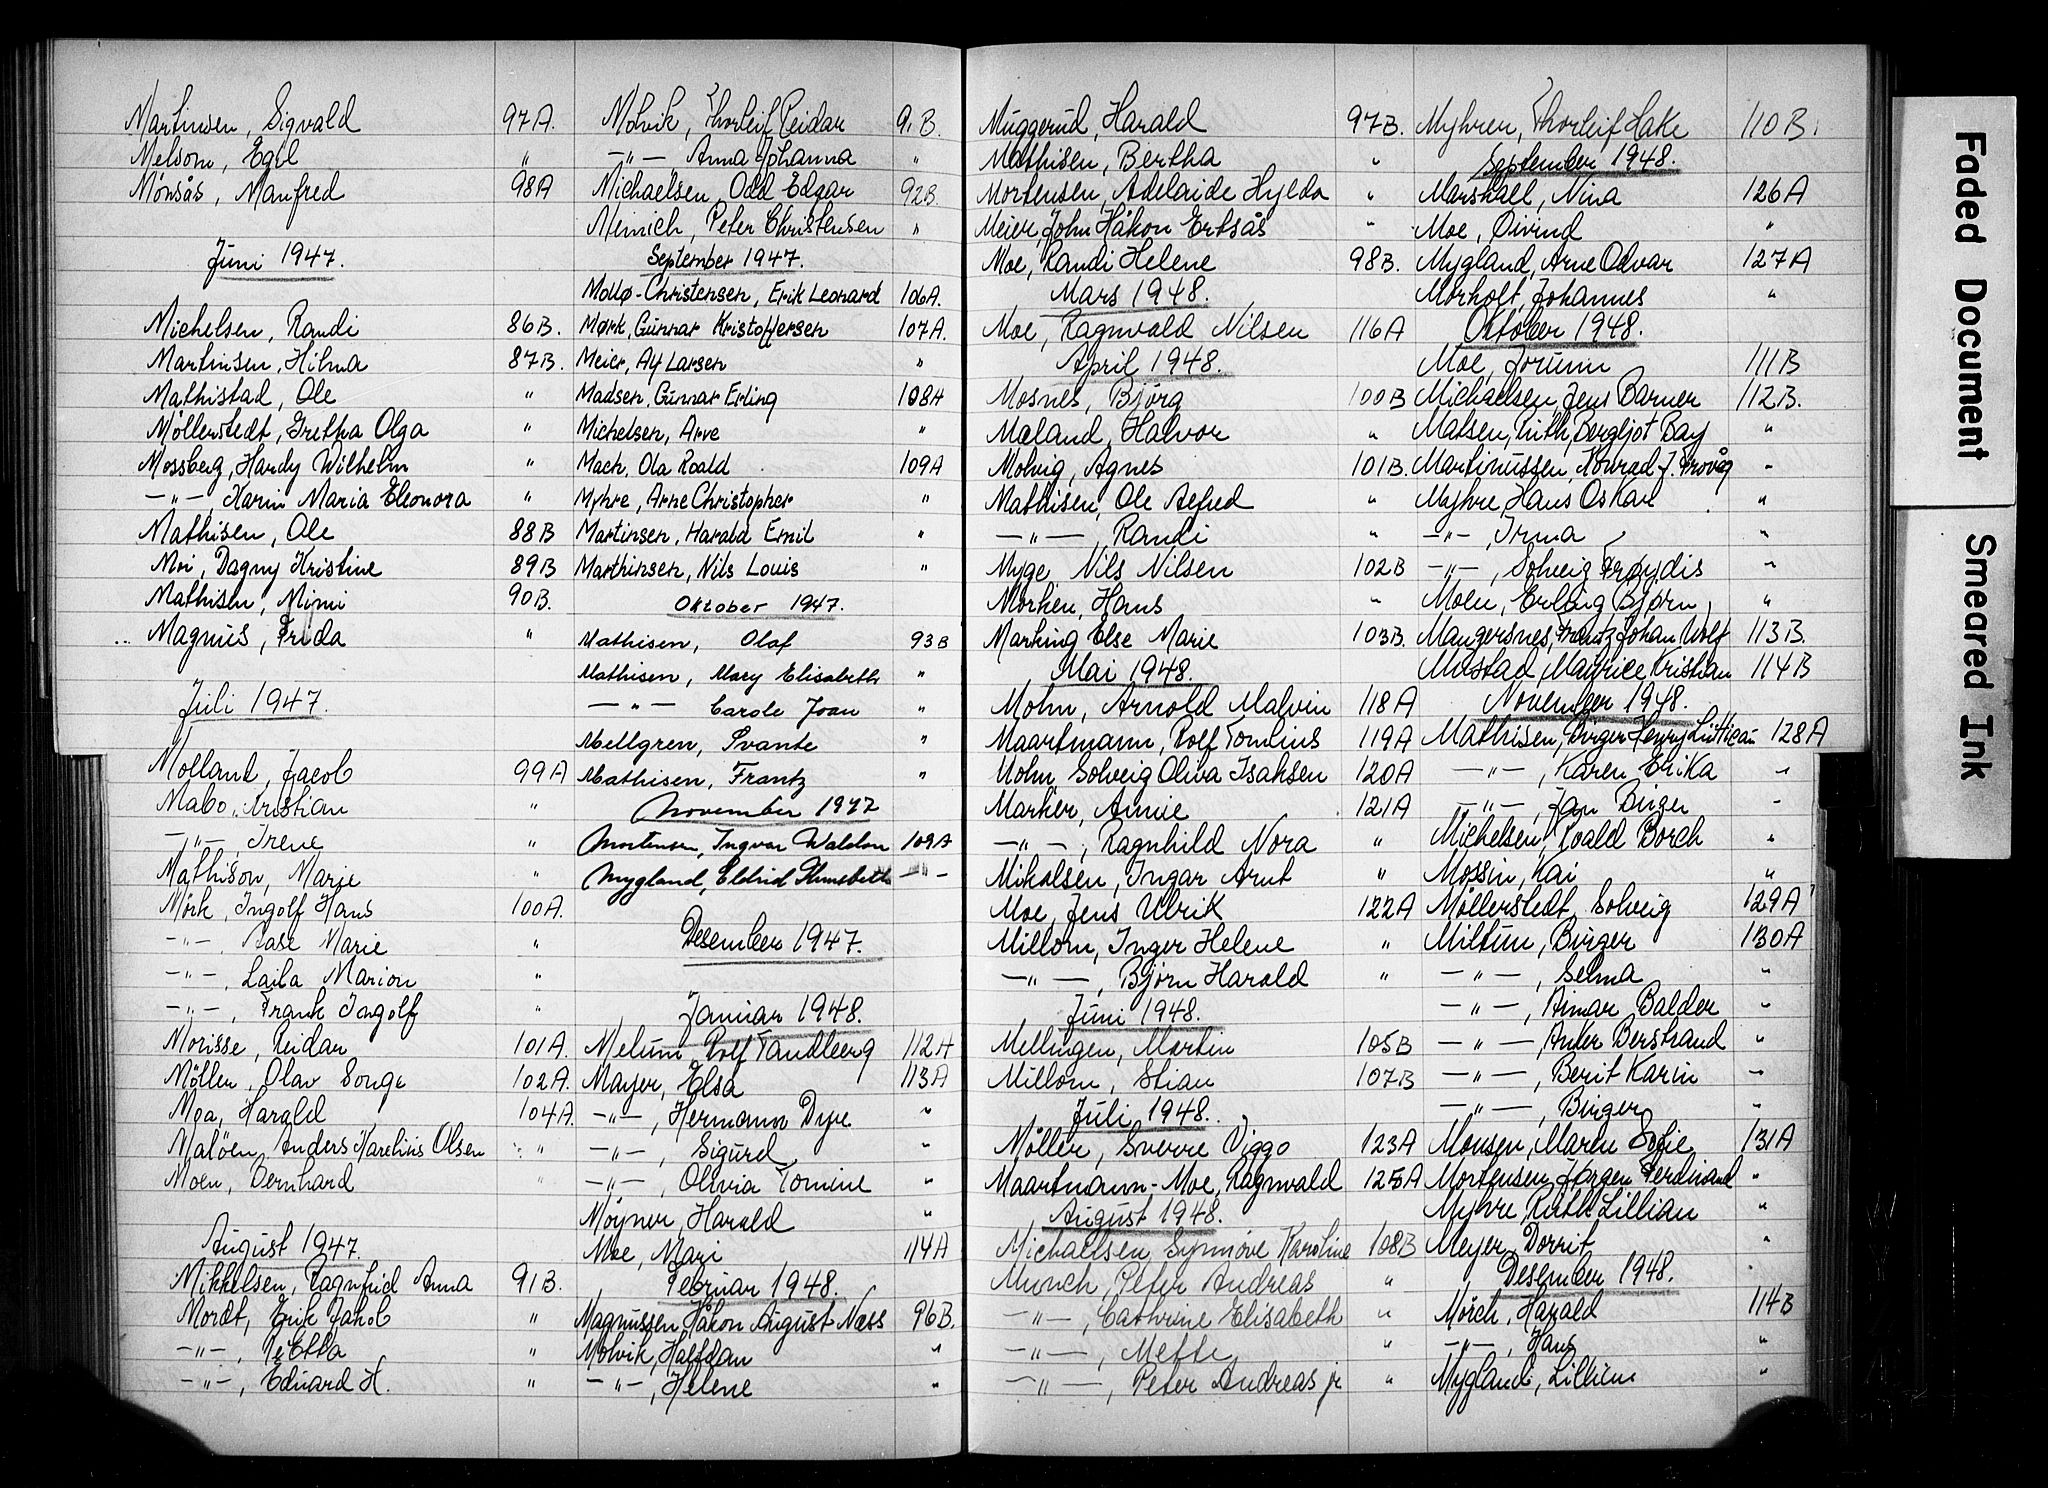 Martinsen, Sigvald 97A.
Melsom, Egil "
Mönsås, Manfred 98A
Juni 1947.
Michelsen, Randi 86B.
Martinsen, Hilma 87B.
Mathistad, Ole "
Möllerstedt, Gretha Olga "
Mossberg, Hardy Wilhelm "
—"—, Karin Maria Eleonora "
Mathisen, Ole 88B
Moi, Dagny Kristine 89B
Mathisen, Mimi 90B.
Magnus, Frida "
Juli 1947.
Molland, Jacob 99A
Mabo, Kristian "
—"—, Irene "
Mathison, Marie "
Mörk, Ingolf Hans 100A.
—"—, Aase Marie "
—"—, Laila Marion "
—"—, Frank Ingolf "
Morisse, Reidar 101A.
Möller, Olav Songe 102A.
Moa, Harald 104A.
Malöen, Anders Karelius Olsen "
Moen, Bernhard "
August 1947.
Mikkelsen, Ragnfrid Anna 91B.
Mordt, Erik Jakob "
—"—, "
—"—, Eduard H. "
Molvik, Thorleif Reidar 91B.
—"—, Anna Johanna "
Michaelsen, Odd Edgar 92B.
Meinich, Peter Christensen "
September 1947.
Mollø-Christensen, Erik Leonard 106A.
Mørk, Gunnar Kristoffersen 107A.
Meier, Alf Larsen "
Madsen, Gunnar Erling 108A
Michelsen, Arve "
Mach, Ola Roald 109A
Myhre, Arne Christopher "
Martinsen, Harald Emil "
Marthinsen, Nils Louis "
Oktober 1947.
Mathisen, Olaf 93B
Mathisen, Mary Elisabeth "
—"— Carole Joan "
Mellgren, Svante "
Mathisen, Frantz "
November 1947
Mortensen, Ingvar Waldon 109A
Mygland, Eldrid —"—
Desember 1947.
Januar 1948.
Melum, Rolf Tandberg 112A
Mayer, Elsa 113A
—"—, Hermann Dyre "
—"—, Sigurd "
—"—, Olivia Tomine "
Möyner, Harald "
Moe, Mari 114A
Februar 1948.
Magnussen, Håkon August Næss 96B.
Molvik, Halfdan "
—"—, Helene "
Muggerud, Harald 97B.
Mathisen, Bertha "
Mortensen, Adelaide Hylda "
Meier, John Håkon Ertsås "
Moe, Randi Helene 98B.
Mars 1948.
Moe, Ragnvald Nilsen 116A
April 1948.
Mosnes, Björg 100B
Mæland, Halvor "
Molvig, Agnes 101B.
Mathisen, Ole Alfred "
—"—, Randi "
Myge, Nils Nilsen 102B
Morken, Hans "
Marking Else Marie 103B.
Mai 1948.
Mohn, Arnold Malvin 118A
Maartmann, Rolf Tomlins 119A
Mohn, Solveig Oliva Isaksen 120A
Marker, Annie 121A
—"—, Ragnhild Nora "
Mikalsen, Ingar Arnt "
Moe, Jens Ulrik 122A
Millom, Inger Helene "
—"—, Bjørn Harald "
Juni 1948.
Mellingen, Martin 105B
Millom, Stian 107B
Juli 1948.
Möller, Sverre Viggo 123A
Maartmann-Moe, Ragnvald 125A
August 1948.
Michaelsen, Synnöve Karoline 108B
Munch, Peter Andreas "
—"—, Cathrine Elisabeth "
—"—, Mette "
—"—, Peter Andreas jr "
Myhrer, Thorleif Hake 110B.
September 1948.
Marshall, Nina 126A
Moe, Öivind "
Mygland, Arne Odvar 127A
Mørholt, Johannes "
Oktober 1948.
Moe, Jorunn 111B
Michaelsen, Jens Barner 112B.
Matsen, Ruth Bergljot Bay "
Martinussen, Konrad J. Provåg "
Myhre, Hans Oskar "
—"—, Irma "
—"—, Solveig Frøydis "
Moen, Erling Bjørn "
Maugersnes, Frantz Johan Wolf 113B.
Mustad, Maurice Kristian 114B
November 1948.
Mathisen, Birger Henry 128A
—"—, Karen Erika "
—"—, Jan Birger "
Michelsen, Roald Borch "
Mossin, Kai "
Möllerstedt, Solveig 129A
Miltun, Birger 130A
—"—, Selma "
—"—, Balder "
—"—, Anker Berstrand "
—"—, Berit Karin "
—"—, Birger "
Monsen, Maren Sofie 131A
Mortensen, Jørgen Ferdinand "
Myhre, Ruth Lillian "
Meyer, Dorrit "
Desember 1948.
Mörch, Harald 114B
—"—, Hans "
Mygland, Lillian "
Faded Document
Smeared Ink